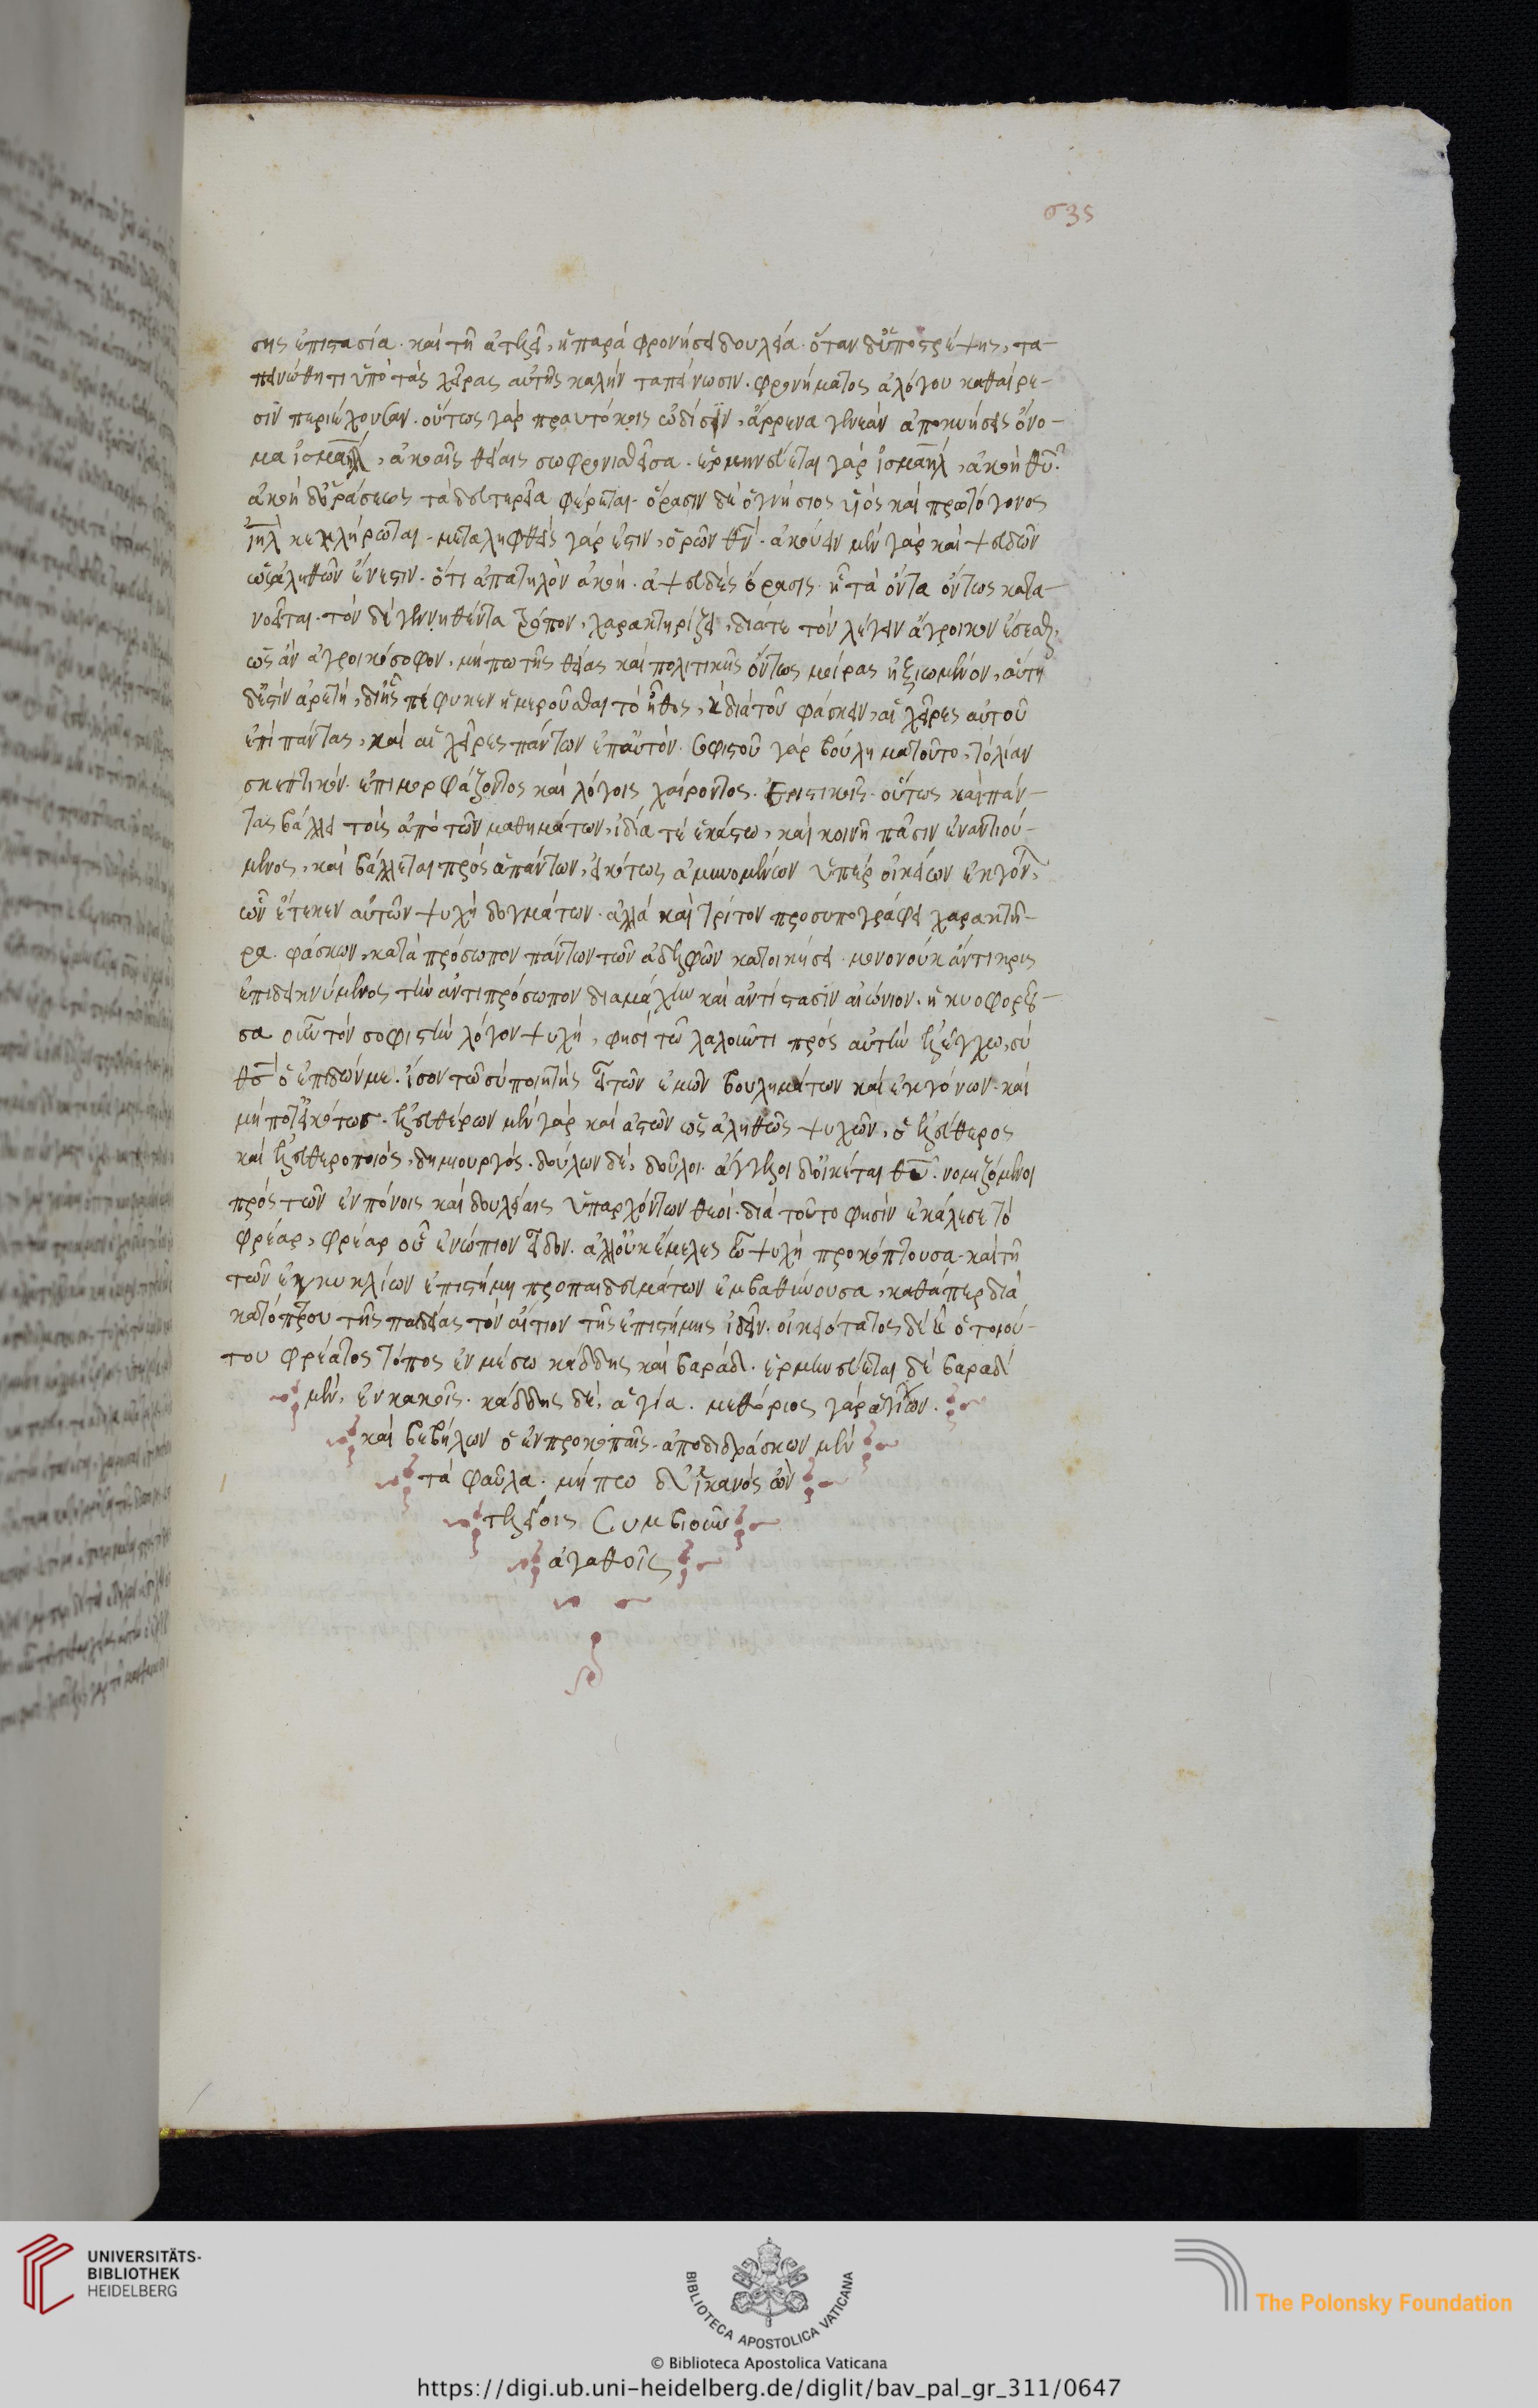 σ35
σης ἐπιστασία. καὶ τῆ ἀτελεῖ, ἡ παρὰ φρονήσει δουλεία. ὅταν δ' ὑποστρέψης, τα-
πεινώθητι ὑπὸ τὰς χεῖρας αὐτῆς καλὴν ταπείνωσιν. φρονήματος ἀλόγου καθαίρε-
σιν περιέχουσαν. οὕτως γὰρ πραυτόκοις ὠδίσιν, ἄρρενα γενεὰν ἀποκυήσεις ὄνο-
μα ἰσμαὴλ, ἀκοαῖς θείαις σωφρονισθεῖσα. ἑρμηνεύεται γὰρ ἰσμαὴλ, ἀκοὴ θυ.
ἀκοὴ δ' ὁράσεως τὰ δευτερεῖα φέρεται. ὅρασιν δὲ ὁ γνήσιος υἱὸς καὶ πρωτόγονος
ιηλ κεκλήρωται. μεταληφθεὶς γάρ ἐστιν, ὁρῶν θν. ἀκούειν μὲν γὰρ καὶ ψευδῶν
ὡς ἀληθῶν ἔνεστιν. ὅτι ἀπατηλὸν ἀκοή. ἀψευδὲς ὅρασις. ἧ τὰ ὄντα ὄντως κατα-
νοεῖται. τὸν δὲ γεννηθέντα τρόπον, χαρακτηρίζει, διά τε τὸν λέγειν ἄγροικον ἔσεσθαι,
ὡς ἂν ἀγροικόσοφον, μήπω τῆς θείας καὶ πολιτικῆς ὄντως μοίρας ἠξιωμένον, αὕτη
δ' ἐστὶν ἀρετή, δι' ἧς πέφυκεν ἡμεροῦσθαι τὸ ἦθος, κ διὰ τοῦ φάσκειν, αἱ χεῖρες αὐτοῦ
ἐπὶ πάντας, καὶ αἱ χεῖρες πάντων ἐπ' αὐτόν. σοφιστοῦ γὰρ βούλημα τοῦτο, τὸ λίαν
σκεπτικὸν ἐπιμορφάζοντος καὶ λόγοις χαίροντος ἐριστικοῖς. οὕτως καὶ πάν-
τας βάλλει τοὺς ἀπὸ τῶν μαθημάτων, ἰδία τε ἑκάστω, καὶ κοινῆ πᾶσιν ἐναντιού-
μενος, καὶ βάλλεται πρὸς ἁπάντων, εἰκότως ἀμυνομένων ὑπὲρ οἰκείων ἐκγόνων,
ὧν ἔτεκεν αὐτῶν ψυχὴ δογμάτων. ἀλλὰ καὶ τρίτον προσυπογράφει χαρακτῆ-
ρα. φάσκων, κατὰ πρόσωπον πάντων τῶν ἀδελφῶν κατοικήσει. μονονοὺκ ἄντικρυς
ἐπιδεικνύμενος τὴν ἀντιπρόσωπον διαμάχην καὶ ἀντίστασιν αἰώνιον. ἡ κυοφοροῦ-
σα οὖν τὸν σοφιστὴν λόγον ψυχὴ, φησὶ τῶ λαλοῦντι πρὸς αὐτὴν ἐλέγχω, σὺ
θς ὁ ἐπιδών με. ἴσον τῶ σὺ ποιητὴς εἶ τῶν ἐμῶν βουλημάτων καὶ ἐκγόνων. καὶ
μήποτ' εἰκότως. ἐλευθέρων μὲν γὰρ καὶ ἀστῶν ὡς ἀληθῶς ψυχῶν, ὁ ἐλεύθερος
καὶ ἐλευθεροποιὸς, δημιουργός. δούλων δὲ, δοῦλοι. ἄγγελοι δ' οἰκέται θυ. νομιζόμενοι
πρὸς τῶν ἐν πόνοις καὶ δουλείαις ὑπαρχόντων θεοί. διὰ τοῦτο φησὶν ἐκάλεσε τὸ
φρέαρ, φρέαρ οὗ ἐνώπιον εἶδον. ἀλλ' οὐκ ἔμελες ὦ ψυχὴ προκόπτουσα. καὶ τῆ
τῶν ἐγκυκλίων ἐπιστήμη προπαιδευμάτων ἐμβαθύνουσα, καθάπερ διὰ
κατόπτρου τῆς παιδείας τὸν αἴτιον τῆς ἐπιστήμης ἰδεῖν. οἰκειότατος δὲ κ ὁ τοιού-
του φρέατος τόπος ἐν μέσω κάδδης καὶ βαράδ. ἑρμηνεύεται δὲ βαρὰδ
μὲν, ἐν κακοῖς. κάδδης δὲ, ἁγία. μεθόριος γὰρ ἁγίων.
καὶ βεβήλων ὁ ἐν προκοπαῖς. ἀποδιδράσκων μὲν
τὰ φαῦλα. μήπω δ' ἱκανὸς ὢν
τελείοις συμβιοῦν
ἀγαθοῖς
UNIVERSITÄTS-
BIBLIOTHEK
HEIDELBERG
BIBLIOTECA APOSTOLICA VATICANA
The Polonsky Foundation
© Biblioteca Apostolica Vaticana
https://digi.ub.uni-heidelberg.de/diglit/bav_pal_gr_311/0647